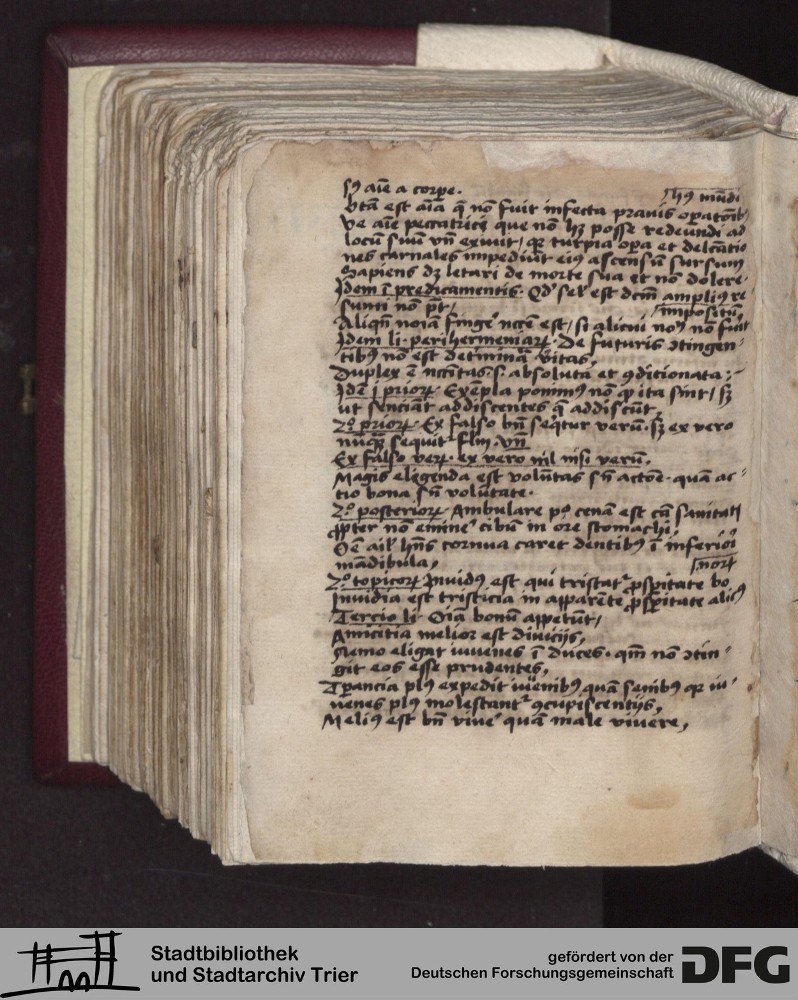 aīe a corpe.
mūdi
btā est aīa q̄ nō fuit infecta prauis
Ve aīe peccatrici que nō hꝫ posse redeundi ad
locū suū vn̄ exiuit / qꝛ turpia opa et delc̄atio
nes carnales impediūt eiꝰ ascensū sursum
Sapiens dꝫ letari de morte sua et nō dolere
Idem ī predicamentis. Qd̓ sel̓ est dcm̄ ampliꝰ re
sumi nō pt̄ / impositū
Aliqn̄ noīa finge͛ nc̄e est / si alicui nō fuīt
Idem li. perihermeniaꝝ. De futuris ↄtingen-
tibꝰ nō est det̓minā v̓itas.
Duplex ē s. absoluta et ꝯdicionata
Idē priorꝝ. Exēpla ponimꝰ nō ꝙ ita sint / sꝫ
ut senciāt addiscentes q̄ addiscūt.
2º priorꝝ. Ex falso bn̄ seqͥtur verū. sꝫ ex vero
nūqͣꝫ sequit̓ flm̄. Vn̄
Ex falso verū. ex vero nil nisi verū.
Magis elegenda est volūtas sn̄ actōe. quā ac-
tio bona sn̄ volūtate.
2º posterioꝝ. Ambulare pꝰ cenā est cā sanitatꝭ
ꝓpter nō emine͛ cibū in ore stomachi
Oē aīal̓ hn̄s cornua caret dentibꝰ ī inferioī
mādibula,
2º topicorꝝ Inuidꝰ est qui tristat᷑ ꝓsꝑitate bo noꝝ
Inuidia est tristicia in apparēte ꝓsꝑitate alicꝰ
Tercio li. Oīa bonū appetūt /
Amicitia melior est diuicijs,
Nemo eligat iuuenes ī duces. qm̄ nō ↄtin-
git eos esse prudentes,
Tꝑancia plꝰ expedit iuēnibꝰ quā senibꝰ qꝛ iu-
uenes plꝰ molestant᷑ ꝯcupiscentijs,
Meliꝰ est bn̄ viue͛ quā male viuere,
Stadtbibliothek
und Stadtarchiv Trier
gefördert von der
Deutschen Forschungsgemeinschaft
DFG